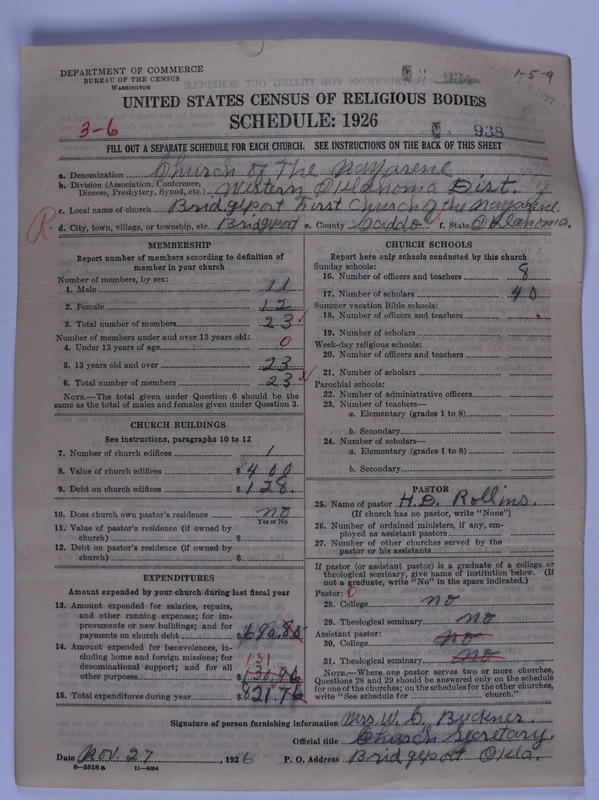 DEPARTMENT OF COMMERCE
BUREAU OF THE CENSUS
WASHINGTON
1-5-9
UNITED STATES CENSUS OF RELIGIOUS BODIES
SCHEDULE: 1926
3-6
938
FILL OUT A SEPARATE SCHEDULE FOR EACH CHURCH. SEE INSTRUCTIONS ON THE BACK OF THIS SHEET
a. Denomination Church of The Nazarene
b. Division (Association, Conference, Diocese, Presbytery, Synod, etc.) Western Oklahoma Dist.
c. Local name of church Bridgeport First Church of the Nazarene.
R d. City, town, village, or township, etc. Bridgeport e. County Caddo f. State Oklahoma.
MEMBERSHIP
Report number of members according to definition of
member in your church
Number of members, by sex:
1. Male 11
2. Female 12
3. Total number of members 23
Number of members under and over 13 years old:
4. Under 13 years of age 0
5. 13 years old and over 23
6. Total number of members 23
NOTE.—The total given under Question 6 should be the
same as the total of males and females given under Question 3.
CHURCH BUILDINGS
See instructions, paragraphs 10 to 12
7. Number of church edifices 1
8. Value of church edifices $400
9. Debt on church edifices $128.
10. Does church own pastor's residence no
Yes or No
11. Value of pastor's residence (if owned by
church) $
12. Debt on pastor's residence (if owned by
church) $
EXPENDITURES
Amount expended by your church during last fiscal year
13. Amount expended for salaries, repairs,
and other running expenses; for im-
provements or new buildings; and for
payments on church debt $690.80
14. Amount expended for benevolences, in-
cluding home and foreign missions; for
denominational support; and for all
other purposes 131 $130.96
15. Total expenditures during year $821.76
CHURCH SCHOOLS
Report here only schools conducted by this church
Sunday schools:
16. Number of officers and teachers 8
17. Number of scholars 40
Summer vacation Bible schools:
18. Number of officers and teachers
19. Number of scholars
Week-day religious schools:
20. Number of officers and teachers
21. Number of scholars
Parochial schools:
22. Number of administrative officers
23. Number of teachers—
a. Elementary (grades 1 to 8)
b. Secondary
24. Number of scholars—
a. Elementary (grades 1 to 8)
b. Secondary
PASTOR
25. Name of pastor H.D. Rollins.
(If church has no pastor, write "None")
26. Number of ordained ministers, if any, em-
ployed as assistant pastors
27. Number of other churches served by the
pastor or his assistants
If pastor (or assistant pastor) is a graduate of a college or
theological seminary, give name of institution below. (If
not a graduate, write "No" in the space indicated.)
Pastor: 0
28. College no
29. Theological seminary no
Assistant pastor:
30. College no
31. Theological seminary no
NOTE.—Where one pastor serves two or more churches,
Questions 28 and 29 should be answered only on the schedule
for one of the churches; on the schedules for the other churches,
write "See schedule for church."
Signature of person furnishing information Mrs. W. C. Buckner.
Official title Church Secretary.
Date Nov. 27, 1926 P. O. Address Bridgeport Okla.
8—5518 a 11—9024